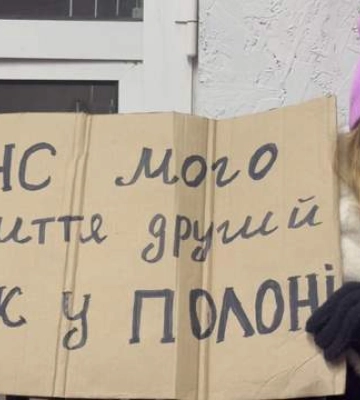 НС мого
иття другий
к у полоні